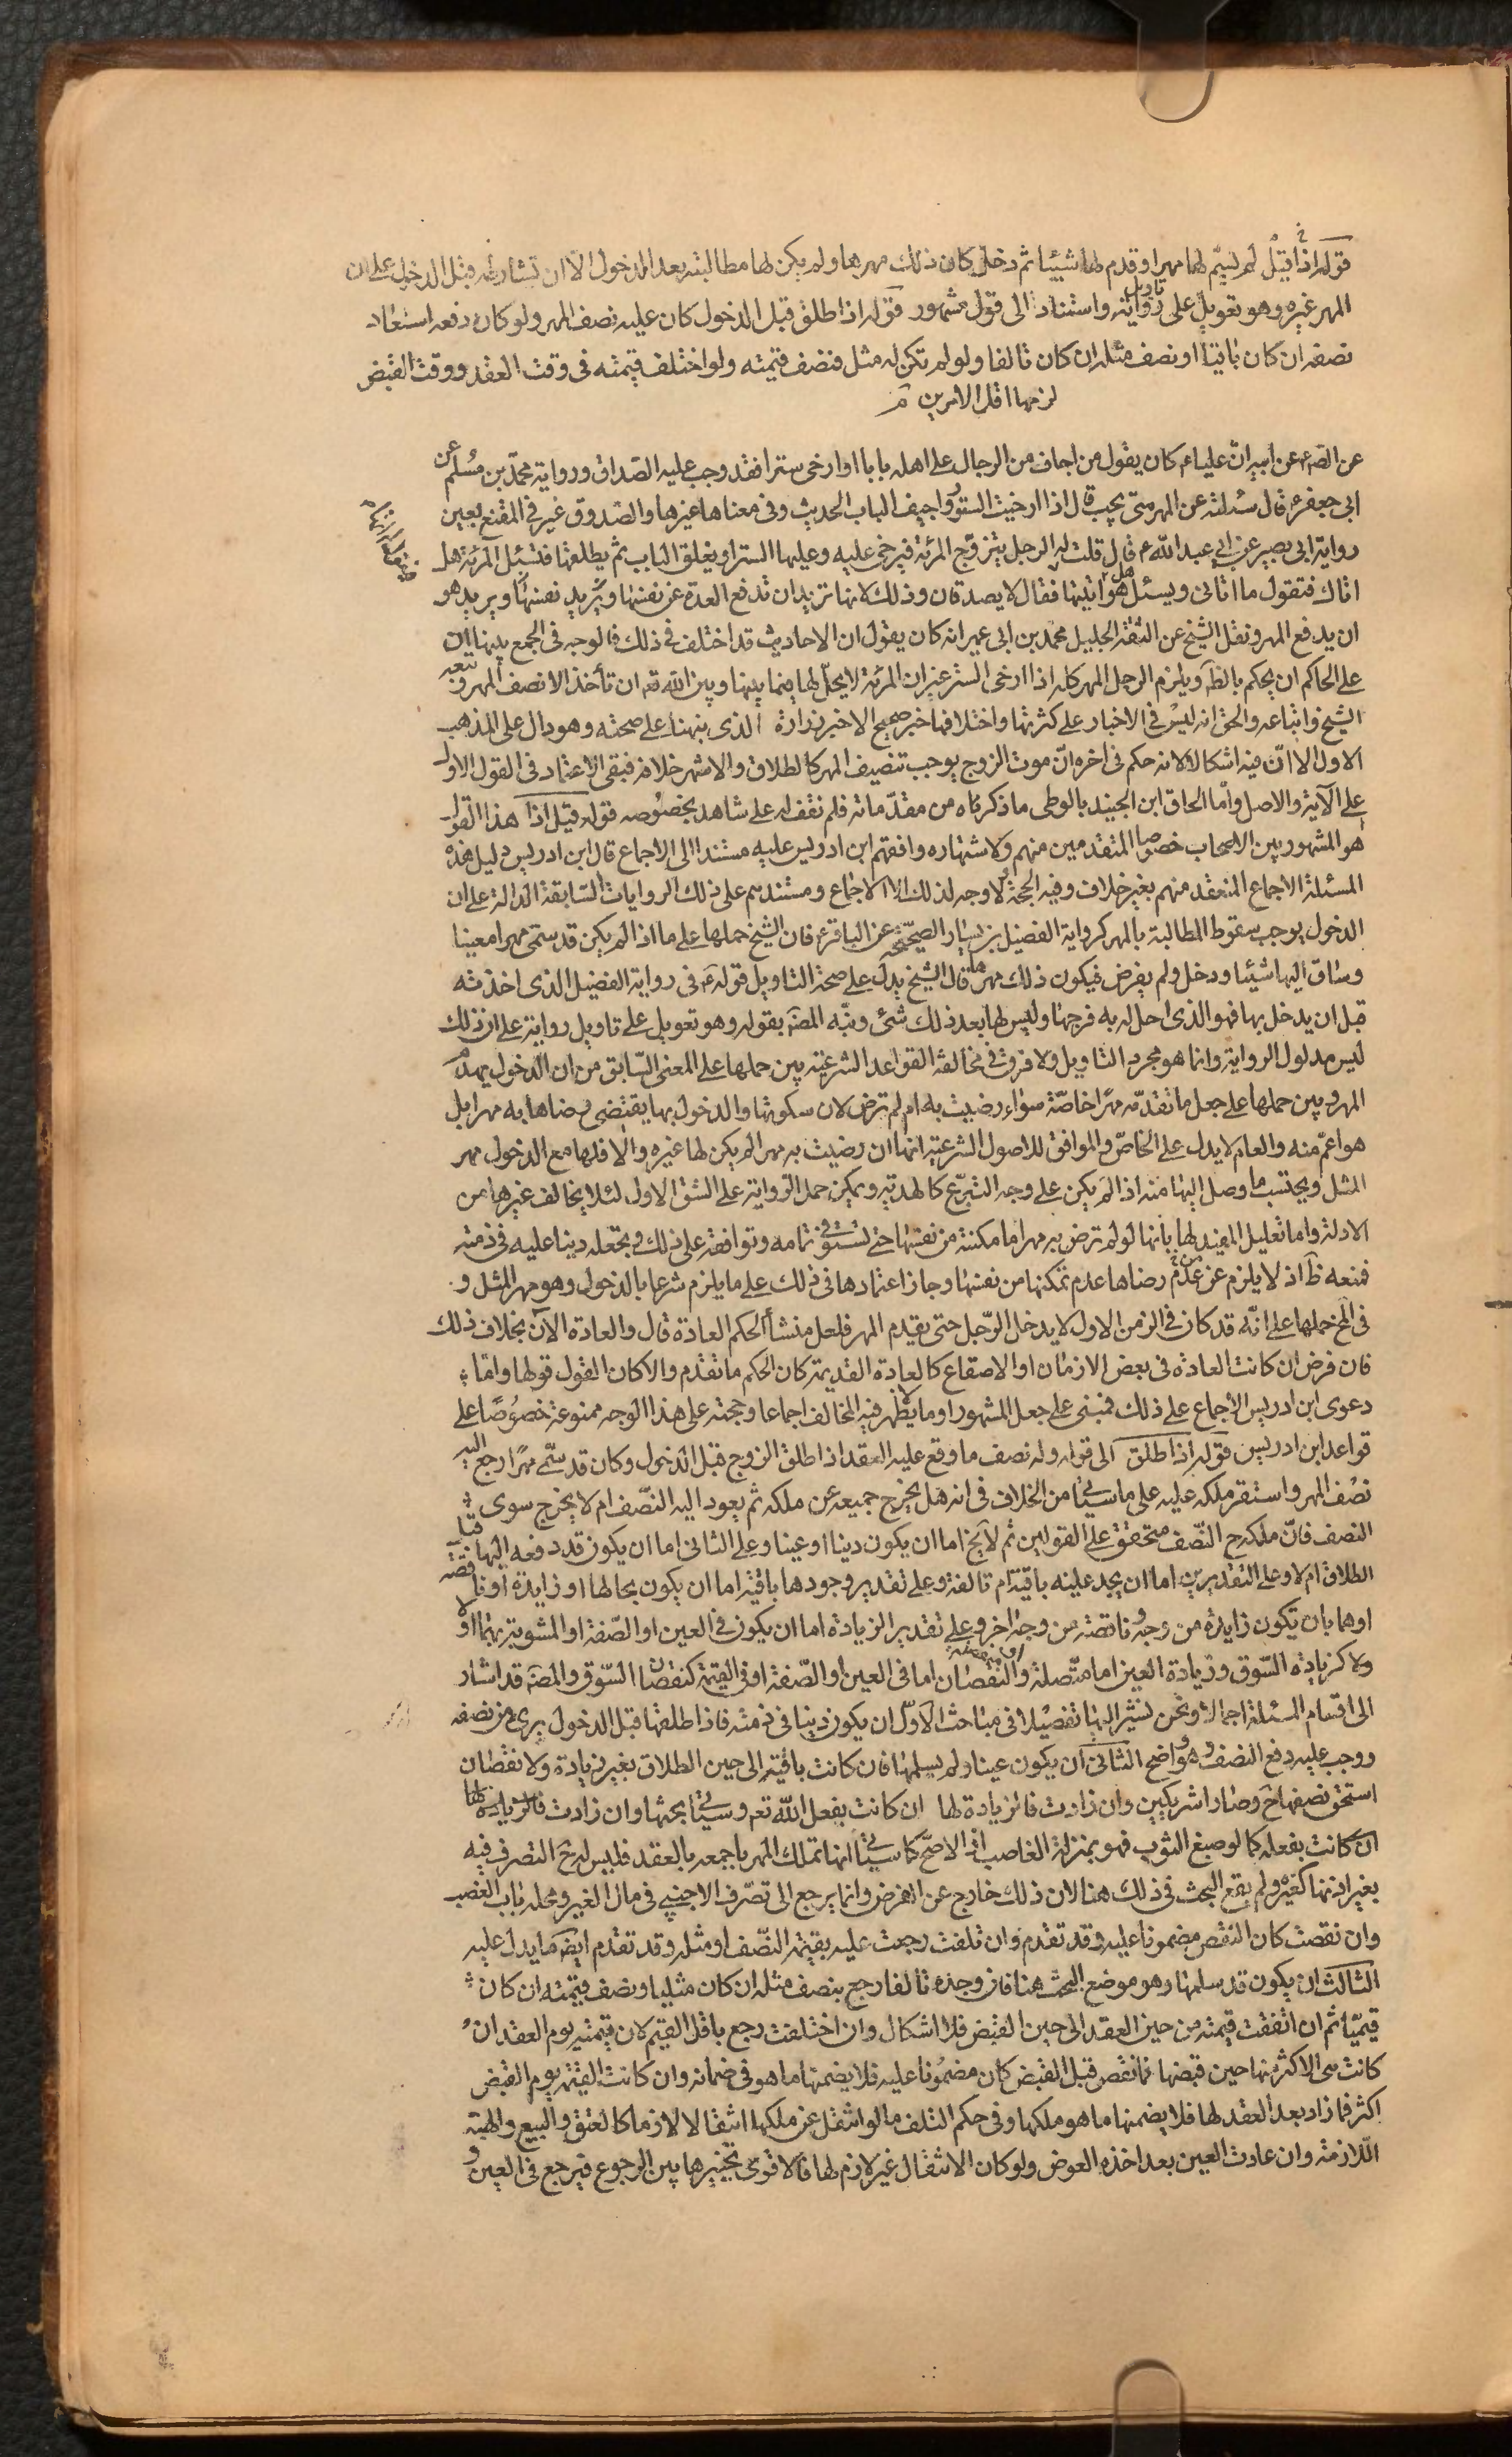 قوله اذا قيل لم يسم لها مهرا وقدم لها شيئا ثم دخل كان ذلك مهرها ولم يكن لها مطالبته بعد الدخول الا ان تشارطه قبل الدخول على ان
المهر غيره وهو تعويل على تاويل رواية واستنادا الى قول مشهور قوله اذا طلق قبل الدخول كان عليه نصف المهر ولو كان دفعه استعاد
نصفه ان كان باقيا او نصف مثله ان كان تالفا ولو لم تكن له مثل فنصف قيمته ولو اختلف قيمته في وقت العقد ووقت القبض
لزمها اقل الامرين
عن الصم عن ابيه ان عليا ع كان يقول من اجاف من الرجال على اهله بابا او ارخى سترا فقد وجب عليه الصداق ورواية محمد بن مسلم عن
ابي جعفر ع قال سئلته عن المهر متى يجب قال اذا ارخيت الستور واجيف الباب الحديث وفي معناها غيرها والصدوق غير في المقنع بعين
رواية ابي بصير عن ابي عبد الله ع قال قلت له الرجل يتزوج المرئة فيرخى عليه وعليها الستر او يغلق الباب ثم يطلقها فتسئل المرئة هل
اتاك فتقول ما اتاني ويسئل هو هل اتيتها فيقول لم اتها فقال لا يصدقان وذلك لانها تريد ان تدفع العدة عن نفسها ويريد هو
ان يدفع المهر ونقل الشيخ عن الثقة الجليل محمد بن ابي عمير انه كان يقول ان الاحاديث قد اختلف في ذلك فالوجه في الجمع بينها ان
على الحاكم ان يحكم بالظ ويلزم الرجل المهر كله اذا ارخى الستر غير ان المرئة لا يحل لها فيما بينها وبين الله تع ان تأخذ الا نصف المهر وتبعه
الشيخ واتباعه والحق انه ليس في الاخبار على كثرتها واختلافها خبر صحيح الا خبر زرارة الذي نبهنا على صحته وهو دال على المذهب
الاول الا ان فيه اشكالا لانه حكم في اخره ان موت الزوج يوجب تنصيف المهر كالطلاق والاشهر خلافه فبقى الاعتماد في القول الاول
على الآية والاصل واما الحاق ابن الجنيد بالوطى ما ذكرناه من مقدماته فلم نقف له على شاهد بخصوصه قوله قيل اذا هذا القول
هو المشهور بين الاصحاب خصوصا المتقدمين منهم ولاشتهاره وافقهم ابن ادريس عليه مستندا الى الاجماع قال ابن ادريس دليل هذه
المسئلة الاجماع المنعقد منهم بغير خلاف وفيه الحجة ولا وجه لذلك الا الاجماع ومستندهم على ذلك الروايات السابقة الدالة على ان
الدخول يوجب سقوط المطالبة بالمهر كرواية الفضيل بن يسار الصحيحة عن الباقر ع فان الشيخ حملها على ما اذا لم يكن قد سمى مهرا معينا
وساق اليها شيئا ودخل ولم يفرض فيكون ذلك مهرها قال الشيخ يدل على صحة التاويل قوله ع في رواية الفضيل الذي اخذته
قبل ان يدخل بها فهو الذي احل له به فرجها وليس لها بعد ذلك شئ ونبه المصنف بقوله وهو تعويل على تاويل رواية على ان ذلك
ليس مدلول الرواية وانما هو مجرد التاويل ولا فرق في مخالفة القواعد الشرعية بين حملها على المعنى السابق من ان الدخول يهدم
المهر وبين حملها على جعل ما تقدمه مهرا خاصة سواء رضيت به ام لم ترض لان سكوتها والدخول بها لا يقتضى رضاها به مهرا بل
هو اعم منه والعام لا يدل على الخاص والموافق للاصول الشرعية انها ان رضيت به مهرا لم يكن لها غيره والا فلها مع الدخول مهر
المثل ويحتسب ما وصل اليها منه اذا لم يكن على وجه التبرع كالهدية ويمكن حمل الرواية على الشق الاول لئلا يخالف غيرها من
الادلة واما تعليل المفيد لها بانها لو لم ترض به مهرا ما مكنته من نفسها حتى تستوفى تمامه وتوافقه على ذلك وتجعله دينا عليه في ذمته
فمنعه ظ اذ لا يلزم من عدم رضاها عدم تمكينها من نفسها وجاز اعتمادها في ذلك على ما يلزم شرعا بالدخول وهو مهر المثل و
في المخ حملها على انه قد كان في الزمن الاول لا يدخل الرجل حتى يقدم المهر فلعل منشأ الحكم العادة قال والعادة الآن بخلاف ذلك
فان فرض ان كانت العادة في بعض الازمان او الاصقاع كالعادة القديمة كان الحكم ما تقدم والا كان القول قولها واما
دعوى ابن ادريس الاجماع على ذلك فمبنى على جعل المشهور او ما لا يظهر فيه المخالف اجماعا وحجته على هذا الوجه ممنوعة خصوصا على
قواعد ابن ادريس قوله اذا طلق الى قوله وله نصف ما وقع عليه العقد اذا طلق الزوج قبل الدخول وكان قد سمى مهرا رجع اليه
نصف المهر واستقر ملكه عليه على ما سيأتي من الخلاف في انه هل يخرج جميعه عن ملكه ثم يعود اليه النصف ام لا يخرج سوى
النصف فان ملكه ح النصف متحقق على القولين ثم لا يخ اما ان يكون دينا او عينا وعلى الثاني اما ان يكون قد دفعه اليها قبل
الطلاق ام لا وعلى التقديرين اما ان يجد عينه باقية ام تالفة وعلى تقدير وجودها باقية اما ان يكون بحالها او زايدة او ناقصة
او هما بان تكون زايدة من وجه وناقصة من وجه اخر وعلى تقدير الزيادة اما ان يكون في العين او الصفة او المشوبة بهما او لا
ولا كزيادة السوق وزيادة العين اما متصلة او منفصلة والنقصان اما في العين او الصفة او في القيمة كنقصان السوق والمصنف قد اشار
الى اقسام المسئلة اجمالا ونحن نشير اليها تفصيلا في مباحث الاول ان يكون دينا في ذمته فاذا طلقها قبل الدخول برئ من نصفه
ووجب عليه دفع النصف وهو واضح الثاني ان يكون عينا ولم يسلمها فان كانت باقية الى حين الطلاق بغير زيادة ولا نقصان
استحق نصفها ح وصارا شريكين وان زادت فالزيادة لها ان كانت بفعل الله تع وسيأتي بحثها وان زادت فالزيادة لها
ان كانت بفعله كما لو صبغ الثوب فهو بمنزلة الغاصب اذ الاصح كما سيأتي انها تملك المهر باجمعه بالعقد فليس له ح التصرف فيه
بغير اذنها كغيره ولم يقع البحث في ذلك هنا لان ذلك خارج عن الفرض وانما يرجع الى تصرف الاجنبي في مال الغير ومحله باب الغصب
وان نقصت كان النقص مضمونا عليه وقد تقدم وان تلفت رجعت عليه بقيمة النصف او مثله وقد تقدم ايضا ما يدل عليه
الثالث ان يكون قد سلمها وهو موضع البحث هنا فان وجده تالفا رجع بنصف مثله ان كان مثليا ونصف قيمته ان كان
قيميا ثم ان اتفقت قيمته من حين العقد الى حين القبض فلا اشكال وان اختلفت رجع باقل القيم لان قيمته يوم العقد ان
كانت هي الاكثر منها حين قبضها فما نقص قبل القبض كان مضمونا عليه فلا يضمنها ما هو في ضمانه وان كانت القيمة يوم القبض
اكثر فما زاد بعد العقد لها فلا يضمنها ما هو ملكها وفي حكم التلف ما لو انتقل عن ملكها انتقالا لازما كالعتق والبيع والهبة
اللازمة وان عادت العين بعد اخذه العوض ولو كان الانتقال غير لازم لها فالاقوى تخييرها بين الرجوع فيرجع في العين و